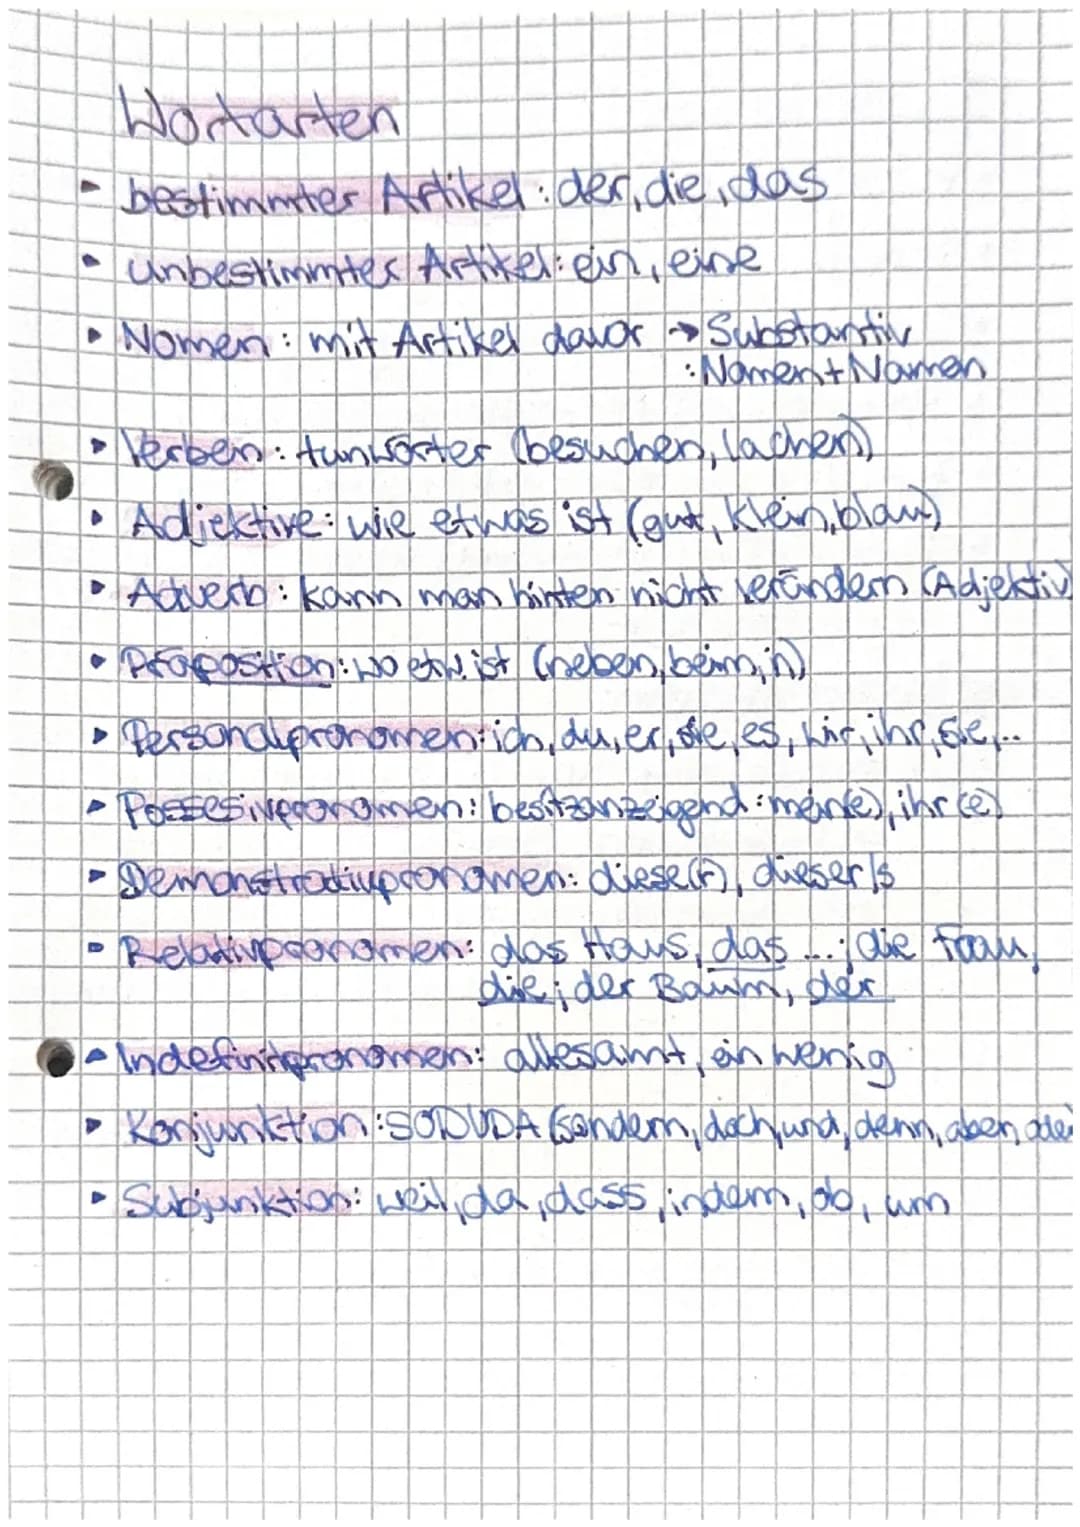 Wortarten
bestimmter Artikel: der, die, das
unbestimmter Artikel: ein, eine
Nomen: mit Artikel davor → Substantiv
: Nomen + Namen
Verben: tunwörter (besuchen, lachen)
Adjektive: wie etwas ist (gut, klein, blau)
Adverb: kann man hinten nicht verändern (Adjektiv)
Präposition: wo etw. ist (neben, beim, in)
Personalpronomen: ich, du, er, sie, es, wir, ihr, sie,..
Possesivpronomen: besitzanzeigend: mein(e), ihr(e)
Demonstradivpronomen: diese(r), dieser/s
Relativpronomen: das Haus, das ...; die Frau,
die; der Baum, der
Indefinitpronomen: allesamt, ein wenig
Konjunktion: SODUDA (sondern, doch, und, denn, aber, oder
Subjunktion: weil, da, dass, indem, ob, um